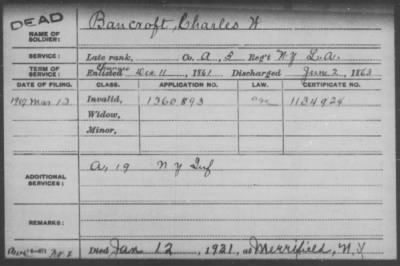 DEAD
NAME OF SOLDIER: Bancroft, Charles H
SERVICE: Late rank, Co. A, L Reg't N Y L. A.
TERM OF SERVICE: Enlisted Dec. 11, 1861 Discharged June 2, 1863
DATE OF FILING. CLASS. APPLICATION NO. LAW. CERTIFICATE NO.
1907 Mar. 13 Invalid, 1360893 1134924
Widow,
Minor,
ADDITIONAL SERVICES: A, 19 N Y Inf
REMARKS:
Died Jan 12, 1921, at Merrifield, N.Y.